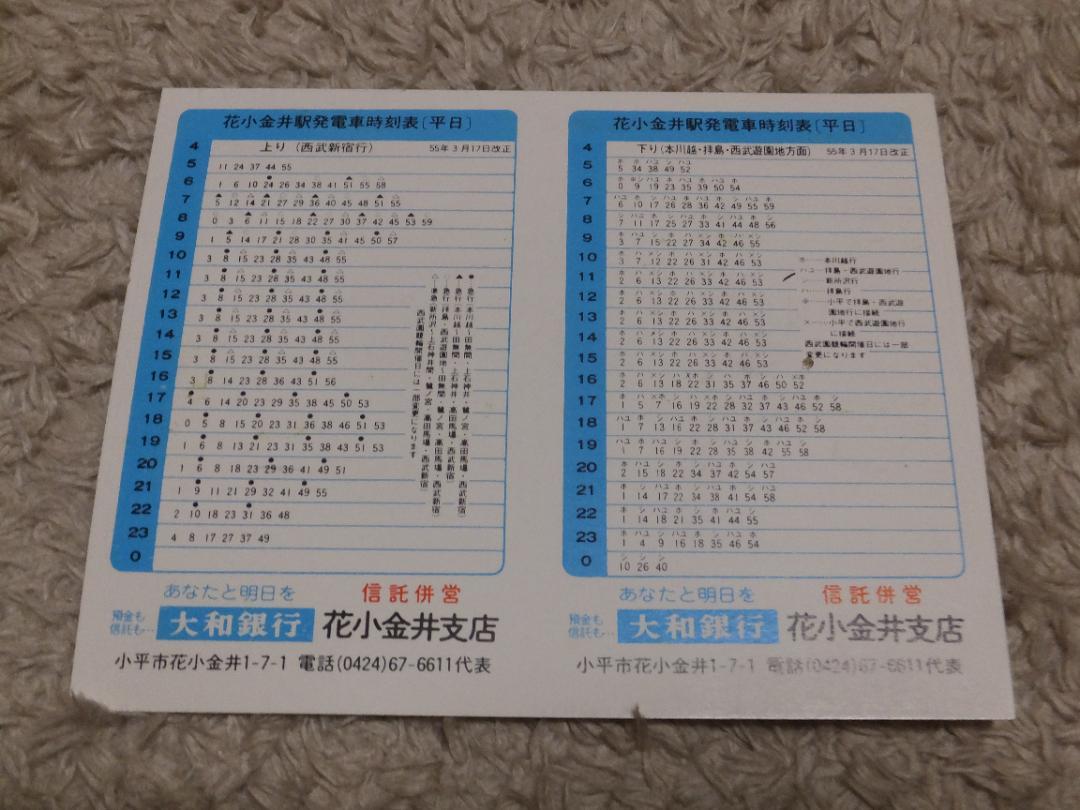 花小金井駅発電車時刻表〔平日〕
4 上り（西武新宿行） 55年3月17日改正
5 11 24 37 44 55
6 1 6 10 24 26 34 38 41 51 55 58
7 5 12 14 21 27 29 36 40 45 48 51 55
8 0 3 6 11 15 18 22 27 30 37 42 45 53 59
9 1 5 14 17 21 28 30 35 41 45 50 57
10 3 8 15 23 28 35 43 48 55
11 3 8 15 23 28 35 43 48 55
12 3 8 15 23 28 35 43 48 55
13 3 8 15 23 28 35 43 48 55
14 3 8 15 23 28 35 43 48 55
15 3 8 15 23 28 35 43 48 55
16 3 8 14 23 28 36 43 51 56
17 4 6 14 20 23 29 35 38 45 50 53
18 0 5 8 15 20 23 31 36 38 46 51 53
19 1 6 8 13 21 23 31 35 38 43 51 53
20 1 6 8 18 23 29 36 41 49 51
21 1 9 11 21 29 32 41 49 55
22 2 10 18 23 31 36 48
23 4 8 17 27 37 49
0
●…急行：本川越～田無間・上石神井・鷺ノ宮・高田馬場・西武新宿
▲…急行：拝島・西武遊園地～田無間・上石神井・高田馬場・西武新宿
△…準急：新所沢～上石神井間・鷺ノ宮・高田馬場・西武新宿
西武園競輪開催日には一部変更になります
あなたと明日を 信託併営
預金も
信託も… 大和銀行 花小金井支店
小平市花小金井1-7-1 電話(0424)67-6611代表
花小金井駅発電車時刻表〔平日〕
4 下り（本川越・拝島・西武遊園地方面） 55年3月17日改正
5 5 34 38 49 52
6 0 9 19 23 35 39 50 54
7 6 10 17 26 28 36 42 49 55 59
8 7 11 17 25 27 33 41 44 48 56
9 3 7 15 22 27 34 42 46 55
10 3 7 12 22 26 31 42 46 53
11 2 6 13 22 26 33 42 46 53
12 2 6 13 22 26 33 42 46 53
13 2 6 13 22 26 33 42 46 53
14 2 6 13 22 26 33 42 46 53
15 2 6 13 22 26 33 42 46 53
16 2 6 13 18 22 31 35 37 46 50 52
17 1 5 7 16 19 22 28 32 37 43 46 52 58
18 1 7 13 16 22 28 31 37 43 46 52 58
19 1 7 16 19 22 28 35 38 42 55 58
20 2 15 18 22 34 37 42 54 57
21 1 14 17 22 34 38 41 54 58
22 1 14 18 21 35 41 44 55
23 1 4 9 16 18 35 46 54
0 10 26 40
ホ……本川越行
ハユ…拝島・西武遊園地行
シ……新所沢行
ハ……拝島行
※……小平で拝島・西武遊
園地行に接続
×……小平で西武遊園地行
に接続
西武園競輪開催日には一部
変更になります
あなたと明日を 信託併営
預金も
信託も… 大和銀行 花小金井支店
小平市花小金井1-7-1 電話(0424)67-6611代表